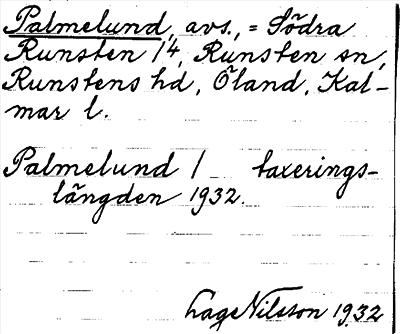 Palmelund, avs., = Södra
Runsten 1⁴, Runsten sn,
Runstens hd, Öland, Kal-
mar l.
Palmelund / taxerings-
längden 1932.
Lage Nilsson 1932